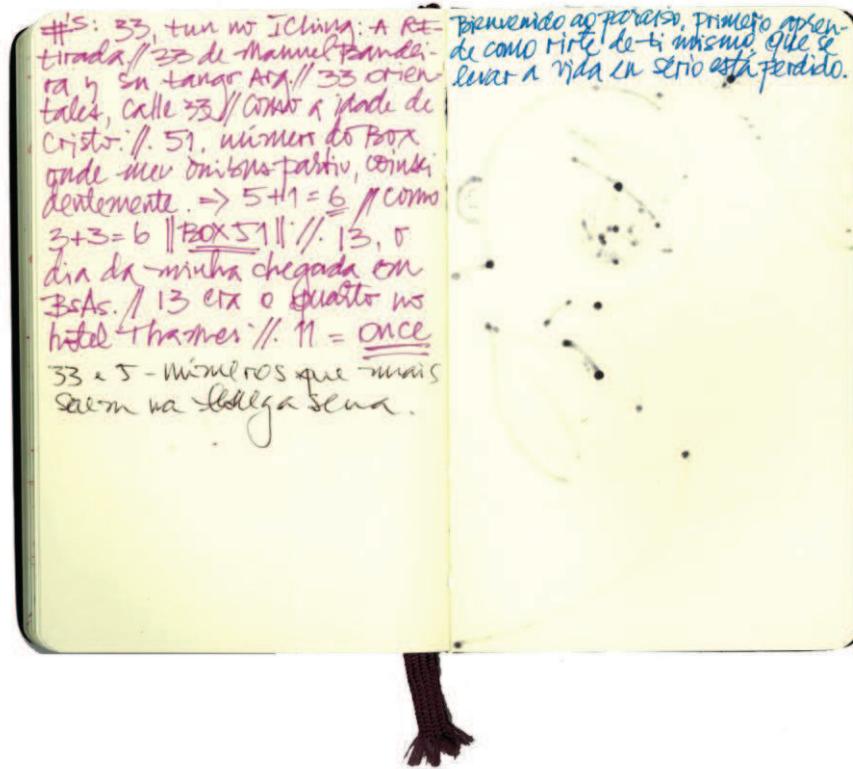 #'s: 33, tun no IChing: A RE-
tirada // 33 de Manuel Bandei-
ra y su tango Arg. // 33 orien-
tales, calle 33 // como a idade de
Cristo. //. 51, número do Box
onde meu ônibus partiu, coinsi
dentemente. => 5+1 = 6 // como
3+3=6 || BOX 51 || //. 13, o
dia da minha chegada em
BsAs. // 13 era o quarto no
hotel Thames //. 11 = once
33 e 5 - números que mais
saem na sena.
Bienvenido ao paraíso, primero apren-
de como rirte de ti mismo, que se
levar a vida en sério está perdido.